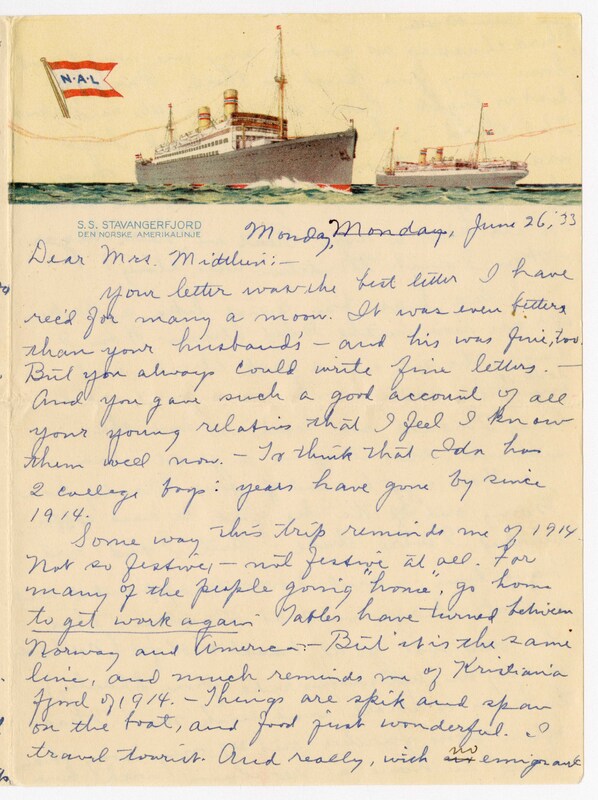 N·A·L
S.S. STAVANGERFJORD
DEN NORSKE AMERIKALINJE
Monday, Monday, June 26, '33
Dear Mrs. Midtlien:—
Your letter was the best letter I have
rec'd for many a moon. It was even better
than your husband's — and his was fine, too.
But you always could write fine letters. —
And you gave such a good account of all
your young relatives that I feel I know
them well now. — To think that Ida has
2 college boys: years have gone by since
1914.
Some way this trip reminds me of 1914
Not so festive, — not festive at all. For
many of the people going "home", go home
to get work again. Tables have turned between
Norway and America. — But it is the same
line, and much reminds me of Kristiania
fjord of 1914. — Things are spik and span
on the boat, and food just wonderful. I
travel tourist. And really, with no emigrant